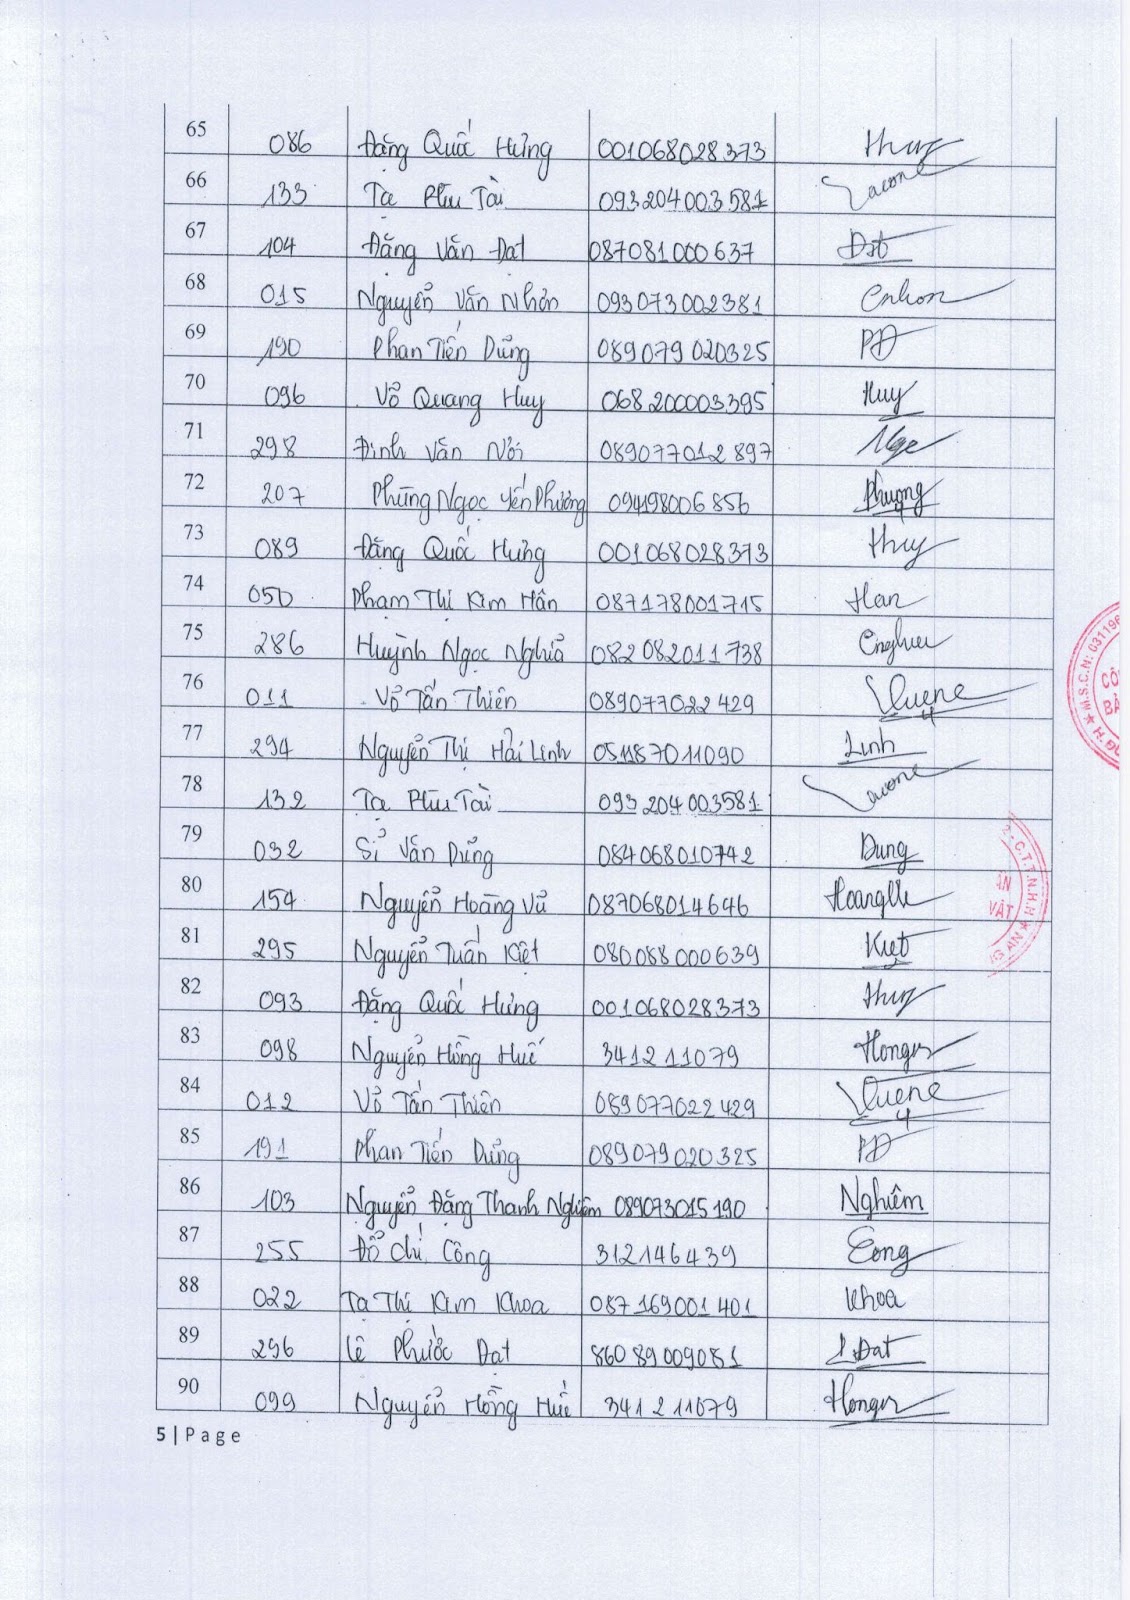 65 086 Đặng Quốc Hưng 001068028373 Huy
66 133 Tạ Phú Tài 093204003581
67 104 Đặng Văn Đạt 087081000637 Đạt
68 015 Nguyễn Văn Nhơn 093073002381
69 190 Phan Tiến Dũng 089079020325 PD
70 096 Võ Quang Huy 068200003395 Huy
71 298 Đinh Văn Nơi 089077012897
72 207 Phùng Ngọc Yến Phương 094198006856 Phượng
73 089 Đặng Quốc Hưng 001068028373 Huy
74 050 Phạm Thị Kim Hân 087178001715 Han
75 286 Huỳnh Ngọc Nghĩa 082082011738
76 011 Võ Tấn Thiên 089077022429
77 294 Nguyễn Thị Hải Linh 051187011090 Linh
78 132 Tạ Phú Tài 093204003581
79 032 Sỉ Văn Dũng 084068010742 Dung
80 154 Nguyễn Hoàng Vũ 087068014646
81 295 Nguyễn Tuấn Kiệt 080088000639 Kiệt
82 093 Đặng Quốc Hưng 001068028373 Huy
83 098 Nguyễn Hồng Huế 341211079
84 012 Võ Tấn Thiên 089077022429
85 191 Phan Tiến Dũng 089079020325 PD
86 103 Nguyễn Đặng Thanh Nghiêm 089073015190 Nghiêm
87 255 Đỗ Chí Công 312146439 Cong
88 022 Tạ Thị Kim Khoa 087169001401 Khoa
89 296 Lê Phước Đạt 86089009081 Đat
90 099 Nguyễn Hồng Huế 341211079
5 | Page